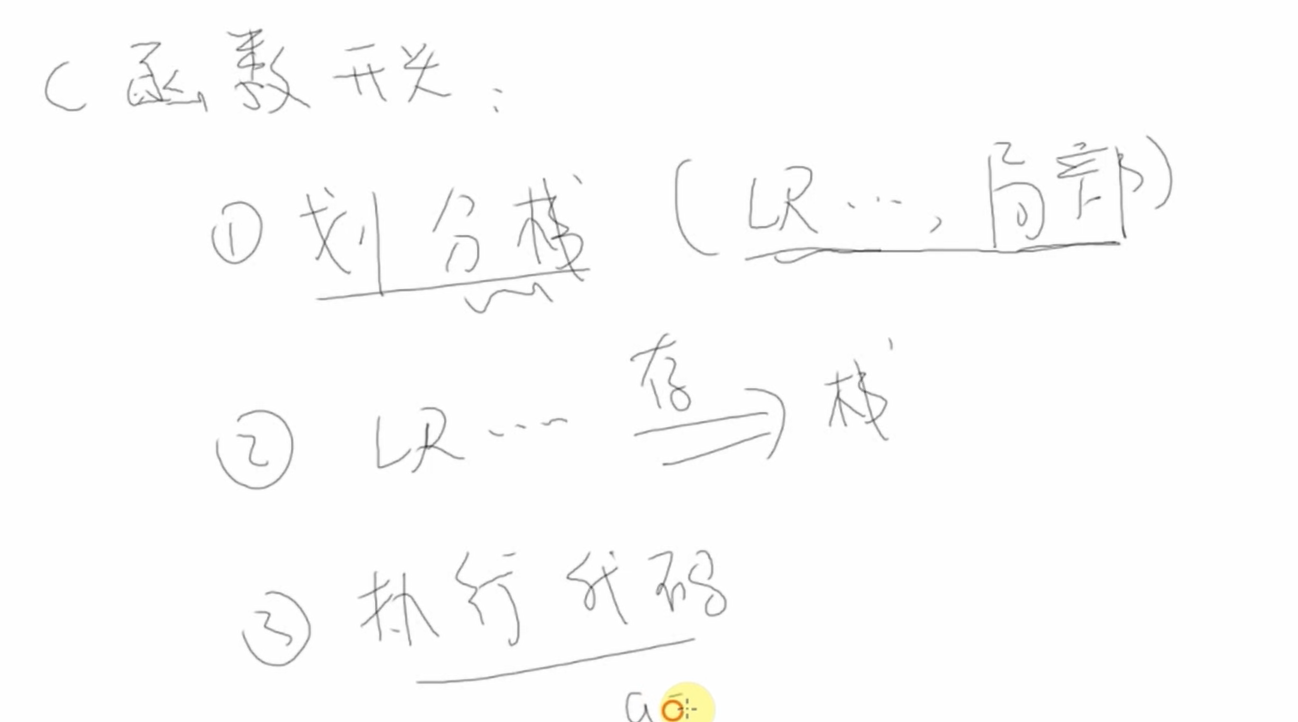 C函数开头:
① 划分栈 (LR ..., 局部)
② LR ... 存 ⇒ 栈
③ 执行代码